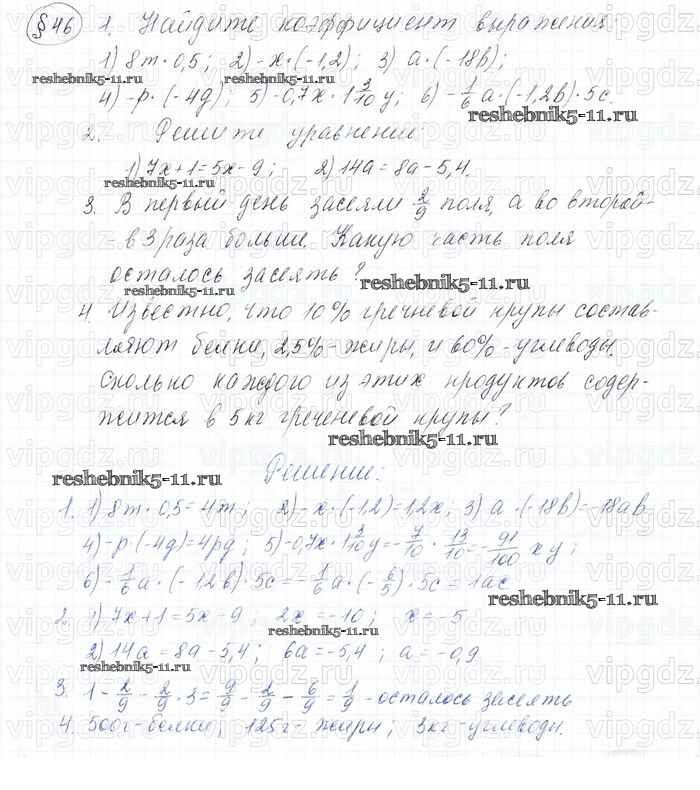 §46 1. Найдите коэффициент выражения
1) 8m·0,5; 2) -x·(-1,2); 3) a·(-18b);
reshebnik5-11.ru reshebnik5-11.ru
4) -p·(-4q); 5) -0,7x·1 3/10 y; 6) -1/6 a·(-1,2b)·5c.
reshebnik5-11.ru
2. Решите уравнение:
1) 7x+1=5x-9; 2) 14a=8a-5,4.
reshebnik5-11.ru
3. В первый день засеяли 2/9 поля, а во второй-
- в 3 раза больше. Какую часть поля
осталось засеять?
reshebnik5-11.ru reshebnik5-11.ru
4. Известно, что 10% гречневой крупы состав-
ляют белки, 2,5% - жиры, и 60% - углеводы.
Сколько каждого из этих продуктов содер-
жится в 5 кг гречневой крупы?
reshebnik5-11.ru
reshebnik5-11.ru Решение:
1. 1) 8m·0,5=4m; 2) -x·(-1,2)=1,2x; 3) a·(-18b)=-18ab
4) -p·(-4q)=4pq; 5) -0,7x·1 3/10 y=-7/10·13/10=-91/100 xy;
6) -1/6 a·(-1,2b)·5c=-1/6 a·(-6/5)·5c=1ac
reshebnik5-11.ru
2. 1) 7x+1=5x-9, 2x=-10; x=-5
reshebnik5-11.ru
2) 14a=8a-5,4; 6a=-5,4; a=-0,9
reshebnik5-11.ru
3. 1-2/9-2/9·3=9/9-2/9-6/9=1/9 - осталось засеять
4. 500г-белки; 125г-жиры; 3кг-углеводы.